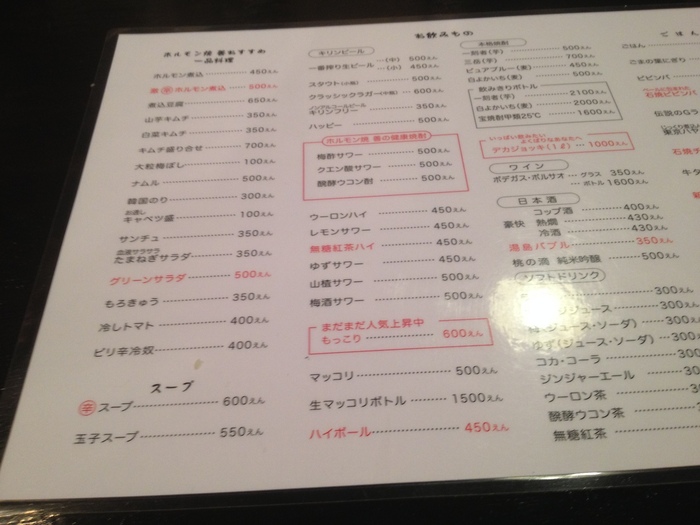 ホルモン焼 番おすすめ
一品料理
ホルモン煮込 450えん
ホルモン煮込 500えん
煮込豆腐 650えん
山芋キムチ 350えん
白菜キムチ 350えん
キムチ盛り合せ 700えん
大粒梅ぼし 100えん
ナムル 500えん
韓国のり 300えん
お通し
キャベツ盛 100えん
サンチュ 350えん
血液サラサラ
たまねぎサラダ 350えん
グリーンサラダ 500えん
もろきゅう 350えん
冷しトマト 400えん
ピリ辛冷奴 400えん
スープ
辛 スープ 600えん
玉子スープ 550えん
お飲みもの
キリンビール
一番搾り生ビール (中) 500えん
(小) 450えん
スタウト(小瓶) 500えん
クラシックラガー(中瓶) 600えん
ノンアルコールビール
キリンフリー 350えん
ハッピー 500えん
ホルモン焼 番の健康焼酎
梅酢サワー 500えん
クエン酸サワー 500えん
醗酵ウコン酎 500えん
ウーロンハイ 450えん
レモンサワー 450えん
無糖紅茶ハイ 450えん
ゆずサワー 500えん
山植サワー 500えん
梅酒サワー 500えん
まだまだ人気上昇中
もっこり 600えん
マッコリ 500えん
生マッコリボトル 1500えん
ハイボール 450えん
本格焼酎
一刻者(芋) 500えん
三岳(芋) 700えん
ピュアブルー(麦) 450えん
白よかいち(麦) 500えん
飲みきりボトル
一刻者(芋) 2100えん
白よかいち(麦) 2000えん
宝焼酎甲類25℃ 1600えん
いっぱい飲みたい
よくばりなあなたへ
デカジョッキ(1ℓ) 1000えん
ワイン
ボデガス・ボルサオ グラス 350えん
ボトル 1600えん
日本酒
コップ酒 400えん
豪快 熱燗 430えん
冷酒 430えん
湯島バブル 350えん
桃の滴 純米吟醸 500えん
ソフトドリンク
300えん
ジュース 300えん
(ジュース・ソーダ) 300えん
ゆず(ジュース・ソーダ) 300え
コカ・コーラ 300
ジンジャーエール 300
ウーロン茶 30
醗酵ウコン茶
無糖紅茶
ごはん
ごはん
ごま の葉にぎり
ビビンバ
石焼ビビンバ
伝説のなら
東京バ
石焼チ
牛タ